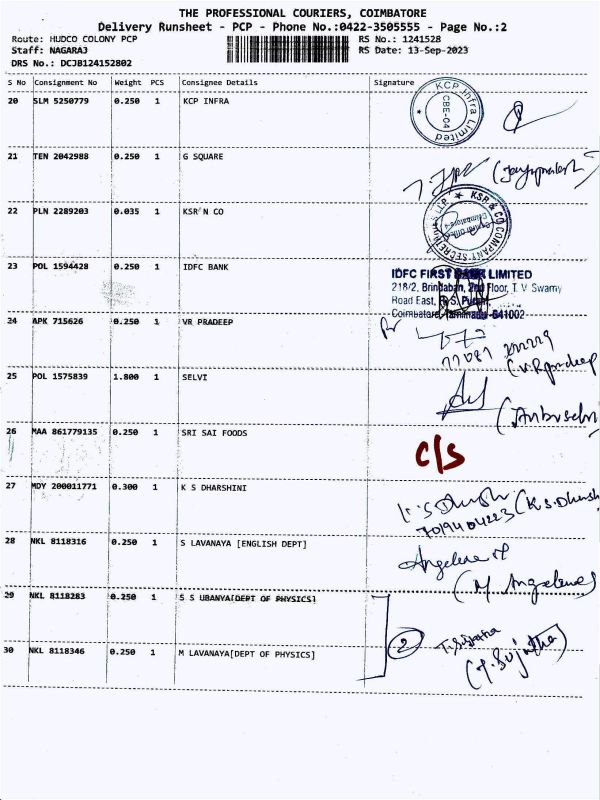 THE PROFESSIONAL COURIERS, COIMBATORE
Delivery Runsheet - PCP - Phone No.:0422-3505555 - Page No.:2
Route: HUDCO COLONY PCP RS No.: 1241528
Staff: NAGARAJ RS Date: 13-Sep-2023
DRS No.: DCJB124152802
S No Consignment No Weight PCS Consignee Details Signature
20 SLM 5250779 0.250 1 KCP INFRA
KCP Infra Limited
CBE-04
21 TEN 2042988 0.250 1 G SQUARE
22 PLN 2289203 0.035 1 KSR N CO
KSR & CO COMPANY SECRETARIES LLP
23 POL 1594428 0.250 1 IDFC BANK
IDFC FIRST BANK LIMITED
218/2, Brindaban, 2nd Floor, T. V. Swamy
Road East, R. S. Puram,
Coimbatore, Tamilnadu - 641002
24 APK 715626 0.250 1 VR PRADEEP
25 POL 1575839 1.800 1 SELVI
26 MAA 861779135 0.250 1 SRI SAI FOODS
C/S
27 MDY 200011771 0.300 1 K S DHARSHINI
28 NKL 8118316 0.250 1 S LAVANAYA [ENGLISH DEPT]
29 NKL 8118283 0.250 1 S S UBANYA[DEPT OF PHYSICS]
2
30 NKL 8118346 0.250 1 M LAVANAYA[DEPT OF PHYSICS]
(T. Sujitha)